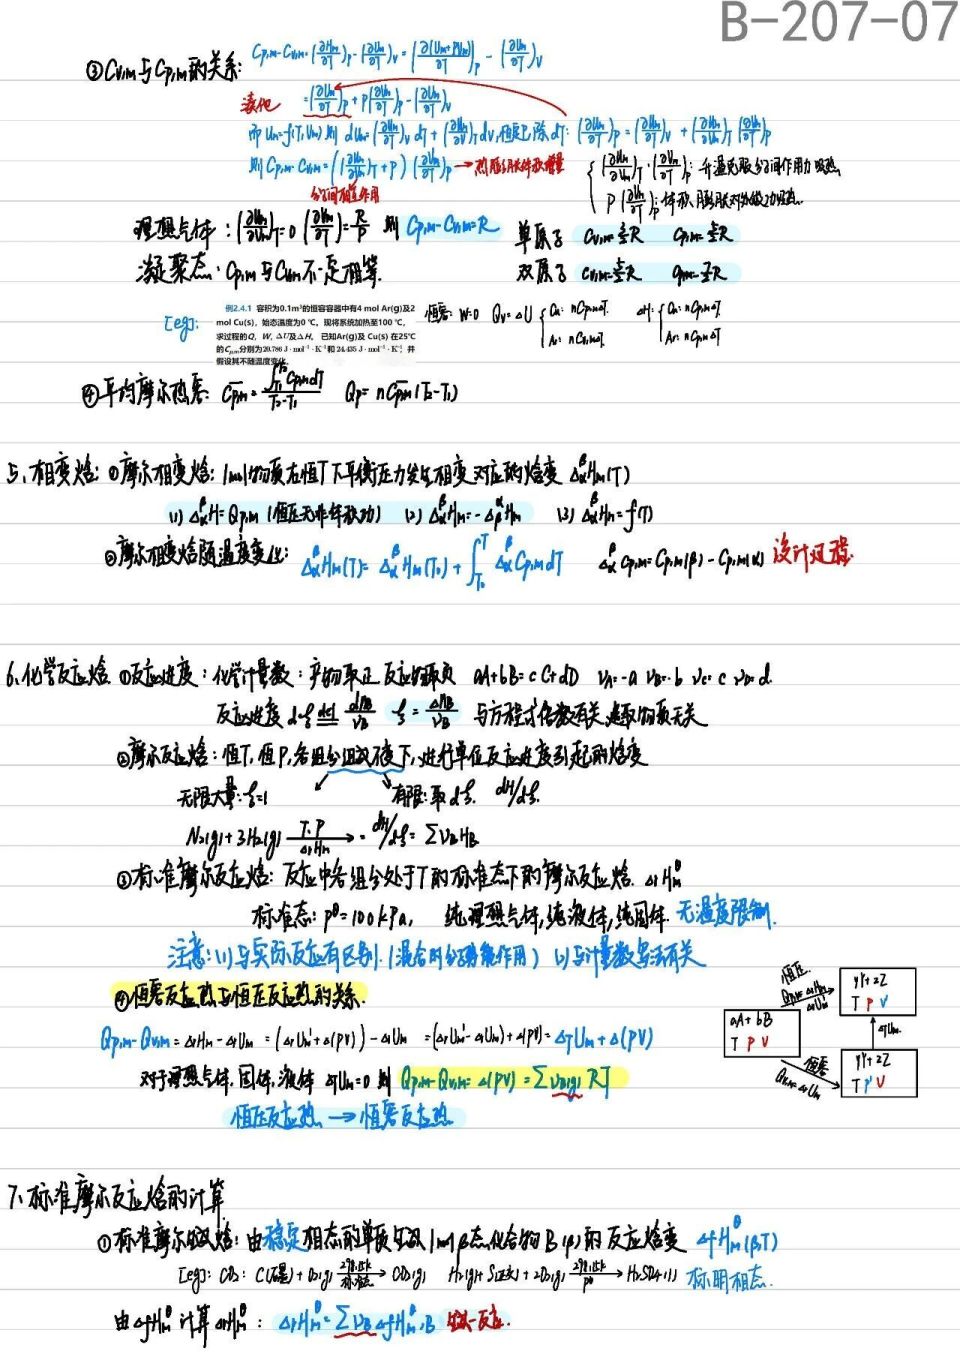 B-207-07
③ Cv,m与Cp,m的关系: Cp,m-Cv,m=(∂Hm/∂T)p-(∂Um/∂T)v=[∂(Um+pVm)/∂T]p-(∂Um/∂T)v
=(∂Um/∂T)p+p(∂Vm/∂T)p-(∂Um/∂T)v
而Um=f(T,Vm) 则 dUm=(∂Um/∂T)v dT+(∂Um/∂V)T dV,恒压 除dT: (∂Um/∂T)p=(∂Um/∂T)v+(∂Um/∂Vm)T(∂Vm/∂T)p
则Cp,m-Cv,m=((∂Um/∂Vm)T+p)(∂Vm/∂T)p→热膨胀体积增量
分子间相互作用
{(∂Um/∂Vm)T·(∂Vm/∂T)p: 升温克服分子间作用力吸热
p(∂Vm/∂T)p: 体积膨胀对外做功吸热
理想气体: (∂Um/∂Vm)T=0 (∂Vm/∂T)=R/P 则 Cp,m-Cv,m=R
单原子 Cv,m=3/2R Cp,m=5/2R
凝聚态: Cp,m与Cv,m不一定相等.
双原子 Cv,m=5/2R Cp,m=7/2R
[eg]:
例2.4.1 容积为0.1m³的恒容容器中有4 mol Ar(g)及2
mol Cu(s)，始态温度为0 ℃，现将系统加热至100 ℃，
求过程的Q，W，ΔU及ΔH。已知Ar(g)及 Cu(s) 在25℃
的Cp,m分别为20.786 J·mol⁻¹·K⁻¹和 24.435 J·mol⁻¹·K⁻¹，并
假设其不随温度变化。
恒容: W=0 Qv=ΔU {Cu: nCp,mΔT. ΔH: {Cu: nCp,mΔT
Ar: nCv,mΔT. Ar: nCp,mΔT
④平均摩尔热容: C̄p,m=∫T1T2 Cp,m dT/(T2-T1) Qp=nC̄p,m(T2-T1)
5、相变焓: ①摩尔相变焓: 1mol物质在恒T下平衡压力发生相变对应的焓变 ΔαβHm(T)
(1) ΔαβH=Qp,m (恒压无非体积功) (2) ΔαβHm=-ΔβαHm (3) ΔαβHm=f(T)
②摩尔相变焓随温度变化: ΔαβHm(T)=ΔαβHm(T0)+∫T0T ΔαβCp,m dT ΔαβCp,m=Cp,m(β)-Cp,m(α) 设计过程
6、化学反应焓 ①反应进度: 化学计量数: 产物取正 反应物取负 aA+bB=cC+dD νA=-a νB=-b νC=c νD=d.
反应进度 dξ def dnB/νB ξ=ΔnB/νB 与方程式系数有关,选取物质无关
②摩尔反应焓: 恒T,恒P,各组分组成不变下,进行单位反应进度引起的焓变
无限大量: ξ=1 有限: 取 dξ. dH/dξ.
N2(g)+3H2(g) T.P ΔrHm → dH/dξ=∑νBHB
③标准摩尔反应焓: 反应中各组分处于T的标准态下的摩尔反应焓. ΔrHmθ
标准态: pθ=100kPa, 纯理想气体,纯液体,纯固体. 无温度限制.
注意: (1)与实际反应有区别.(混合时分子势能作用) (2)与计量数写法有关
④恒容反应热与恒压反应热的关系.
Qp,m-Qv,m=ΔrHm-ΔrUm=(ΔrUm'+Δ(pV))-ΔrUm=(ΔrUm'-ΔrUm)+Δ(pV)=ΔTUm+Δ(pV)
对于理想气体.固体.液体 ΔTUm=0 则 Qp,m-Qv,m=Δ(pV)=∑νB(g)RT
恒压反应热→恒容反应热
aA+bB
T P V
恒压.
Qp,m=ΔrHm
ΔrUm'
yY+zZ
T P V'
ΔTUm.
恒容
Qv,m=ΔrUm
yY+zZ
T P' V
7、标准摩尔反应焓的计算
①标准摩尔生成焓: 由稳定相态的单质生成1mol β态化合物B(β)的反应焓变 ΔfHmθ(β,T)
[eg]: CO2: C(石墨)+O2(g) 298.15K 标准态→CO2(g) H2(g)+S(正交)+2O2(g) 298.15K pθ→H2SO4(l) 标明相态.
由ΔfHmθ计算ΔrHmθ: ΔrHmθ=∑νBΔfHmθ,B 生成-反应.